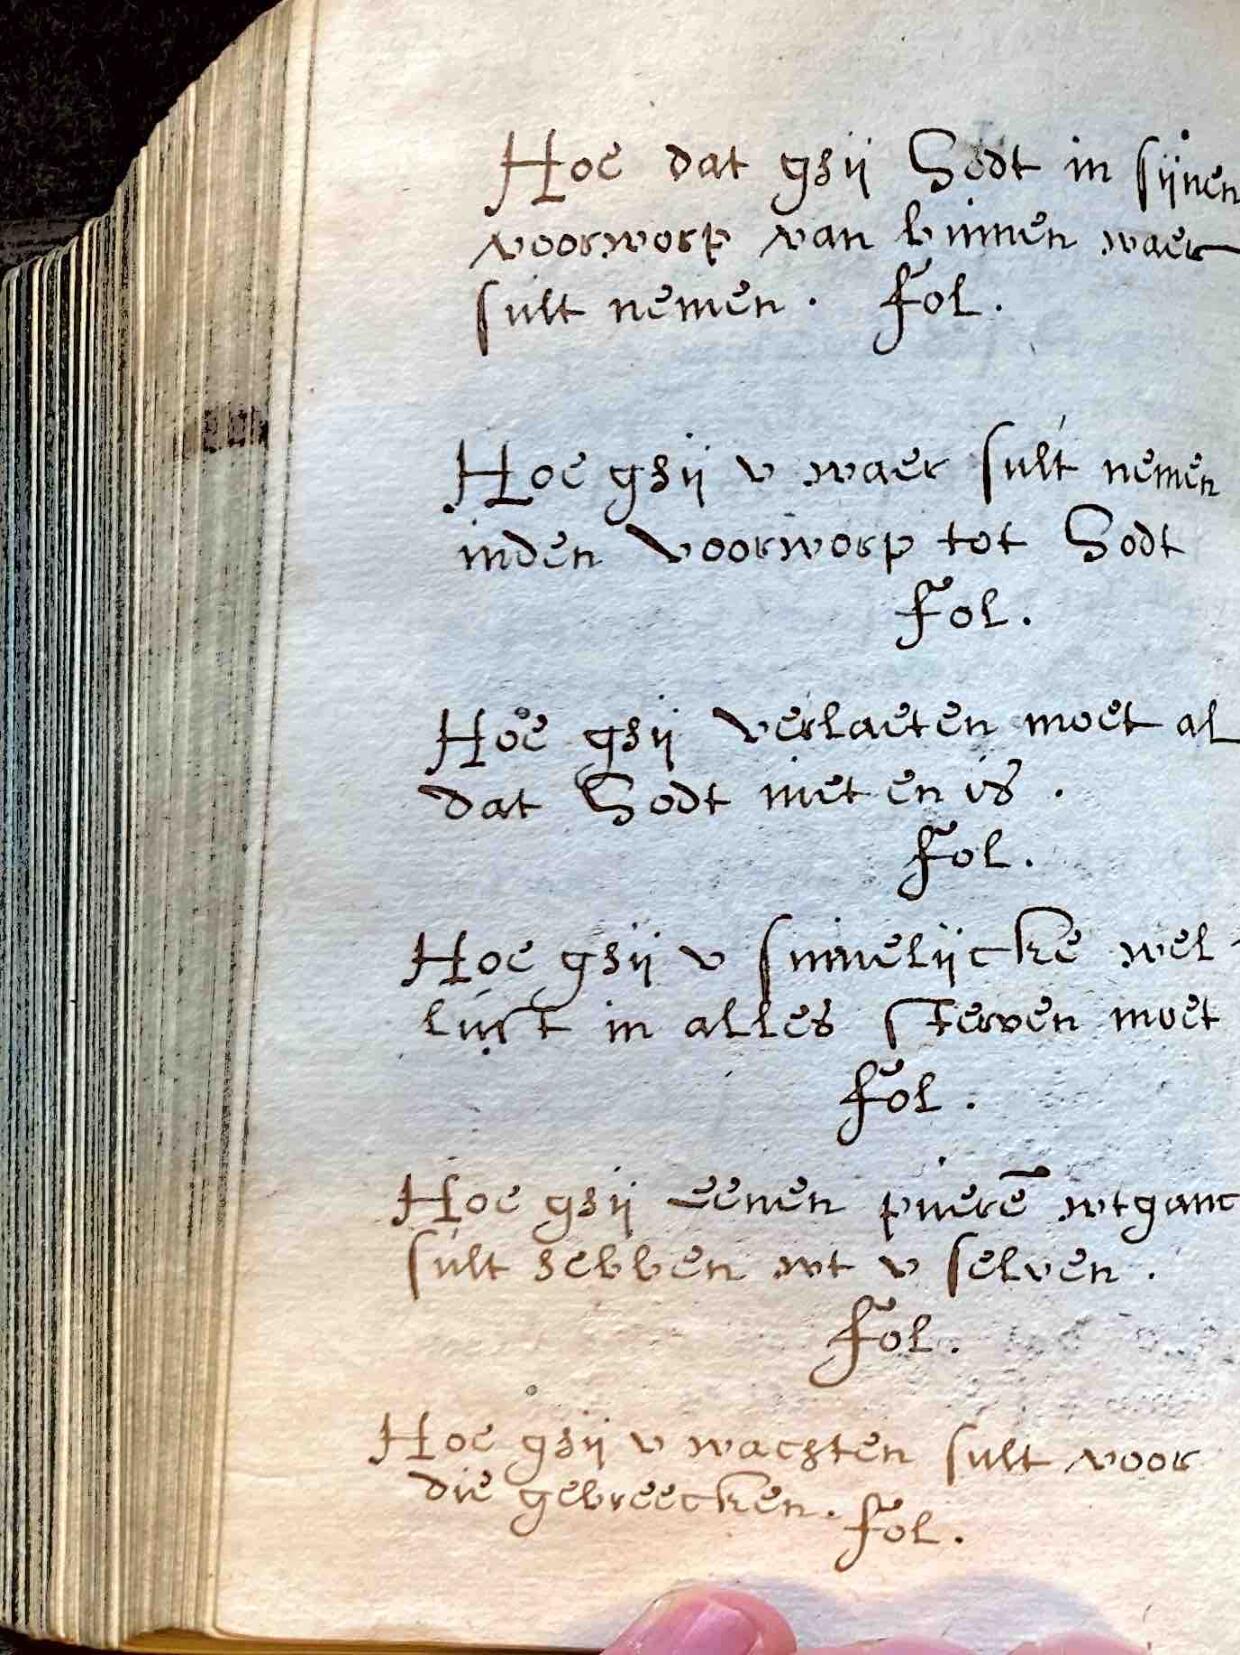 Hoe dat ghij Godt in sijnen
voorworp van binnen waer
sult nemen. Fol.
Hoe ghij v waer sult nemen
inden voorworp tot Godt
Fol.
Hoe ghij verlaeten moet al
dat Godt niet en is.
Fol.
Hoe ghij v sinnelijcke wel-
lust in alles sterven moet
Fol.
Hoe ghij eenen puerē wtganc
sult hebben wt v selven.
Fol.
Hoe ghij v wachten sult voor
die gebreecken. Fol.